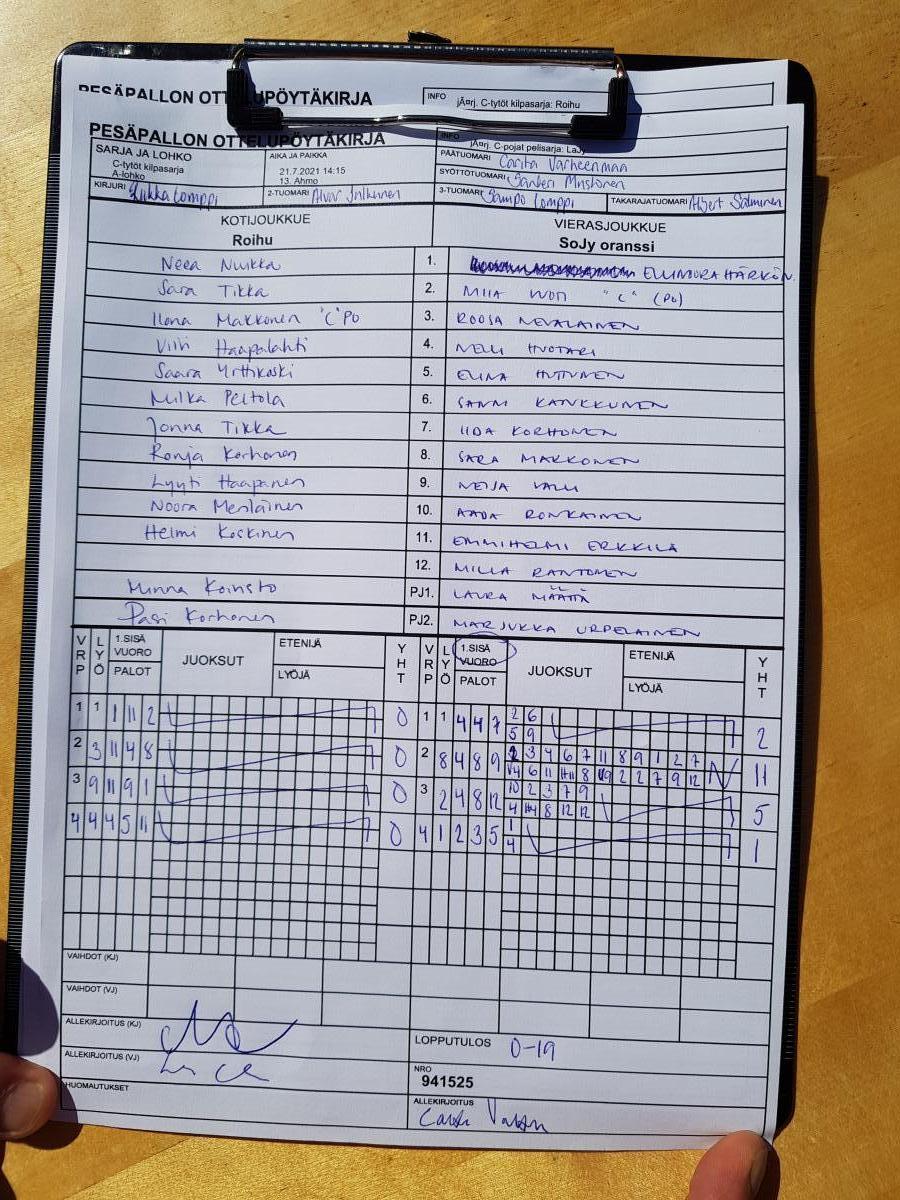 PESÄPALLON OTTELUPÖYTÄKIRJA
INFO
jÄ¤rj. C-tytöt kilpasarja: Roihu
PESÄPALLON OTTELUPÖYTÄKIRJA
INFO
jÄ¤rj. C-pojat pelisarja: LaJy
SARJA JA LOHKO
C-tytöt kilpasarja
A-lohko
AIKA JA PAIKKA
21.7.2021 14:15
13. Ahmo
PÄÄTUOMARI Carita Varheenmaa
SYÖTTÖTUOMARI Santeri Mustonen
KIRJURI Lomppi
2-TUOMARI Alvar Julkunen
3-TUOMARI Sampo Lomppi
TAKARAJATUOMARI Albert Salminen
KOTIJOUKKUE
Roihu
VIERASJOUKKUE
SoJy oranssi
Neea Nuikka 1. ELLINOORA HÄRKÖN
Sara Tikka 2. MIIA "C" (PO)
Ilona Makkonen "C" PO 3. ROOSA NEVALAINEN
Viivi Haapalahti 4. NELLI HUOTARI
Saara Yrttikoski 5. ELINA HUTTUNEN
Milka Peltola 6. SANNI KANKKUNEN
Jonna Tikka 7. IIDA KORHONEN
Ronja Korhonen 8. SARA MAKKONEN
Lyyti Haapanen 9. NEIJA
Noora Meriläinen 10. AADA RONKAINEN
Helmi Koskinen 11. EMMIHELMI ERKKILÄ
12. MILLA RANTONEN
Minna Koivisto PJ1. LAURA MÄÄTTÄ
Pasi Korhonen PJ2. MARJUKKA URPELAINEN
VRP LYÖ 1.SISÄ VUORO PALOT JUOKSUT ETENIJÄ LYÖJÄ YHT VRP LYÖ 1.SISÄ VUORO PALOT JUOKSUT ETENIJÄ LYÖJÄ YHT
1 1 1 11 2 0 1 1 4 4 7 2 6 2
5 9
2 3 11 4 8 0 2 8 4 8 9 2 3 4 6 7 11 8 9 1 2 7 11
4 6 11 11 8 9 2 2 7 9 12
3 9 11 9 1 0 3 2 4 8 12 10 2 3 7 9 5
4 4 8 12 12
4 4 4 5 11 0 4 1 2 3 5 1 1
4
VAIHDOT (KJ)
VAIHDOT (VJ)
ALLEKIRJOITUS (KJ)
LOPPUTULOS 0-19
ALLEKIRJOITUS (VJ)
NRO
941525
HUOMAUTUKSET
ALLEKIRJOITUS